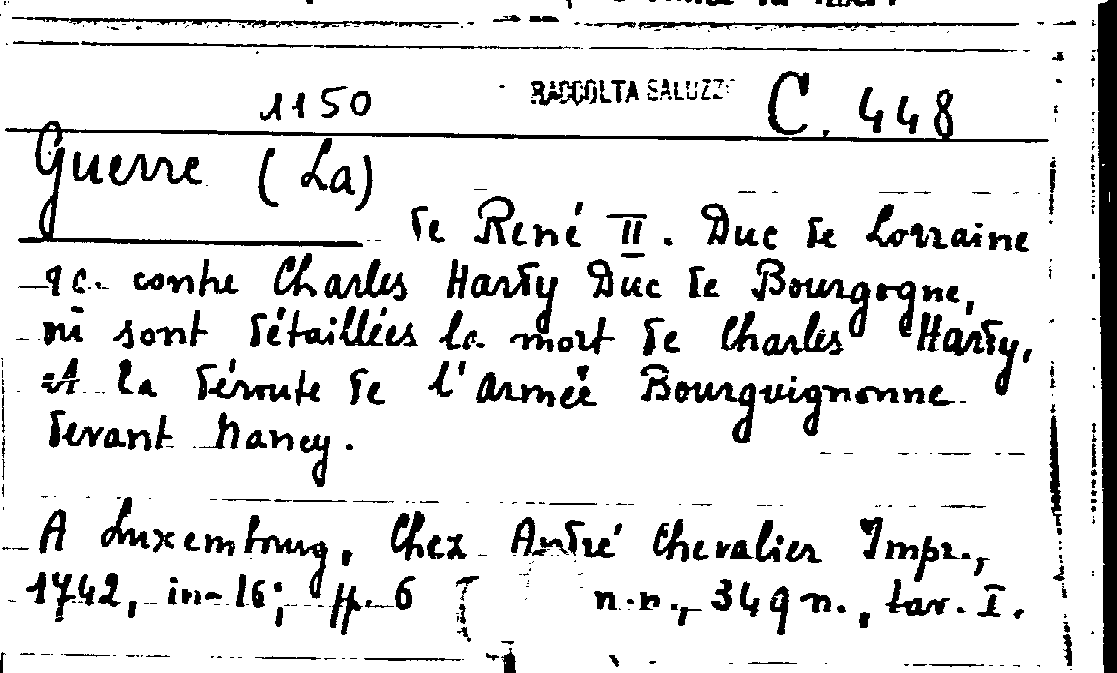 1150 RACCOLTA SALUZZO C. 448
Guerre (La)
de René II. Duc de Lorraine
&c. contre Charles Hardy Duc de Bourgogne,
sont détaillées la mort de Charles Hardy,
la déroute de l'Armée Bourguignonne
devant Nancy.
A Luxembourg, Chez André Chevalier Impr.,
1742, in-16; pp. 6 n.n., 349 n., tav. I.